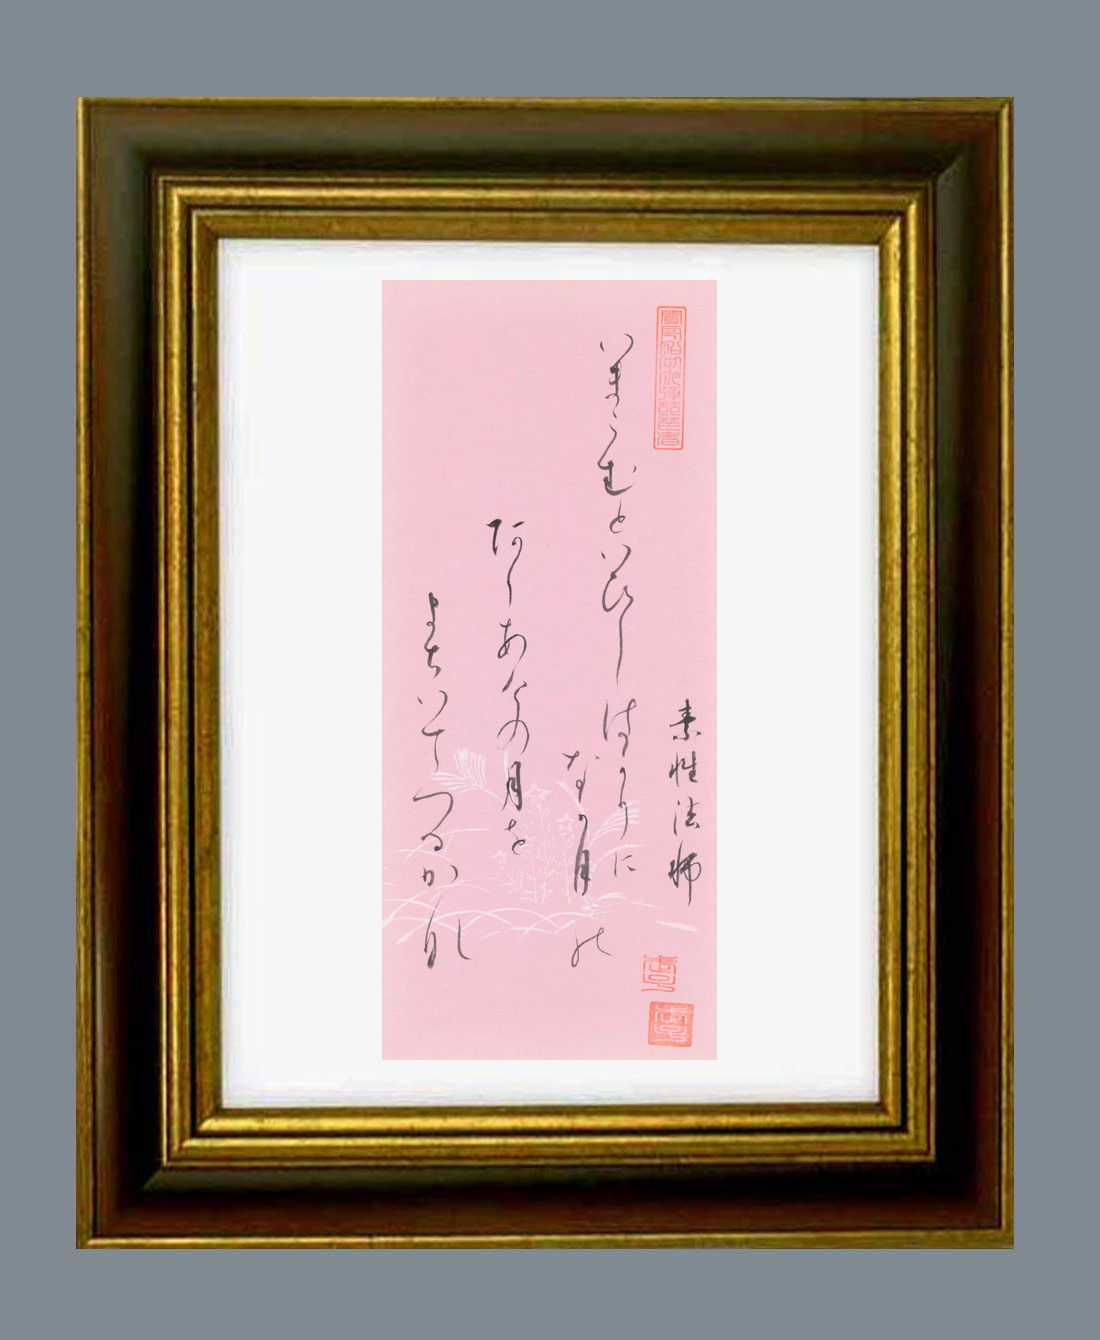 素性法師
いまこむといひしはかりに
なか月の
阿りあけの月を
まちいてつるかな